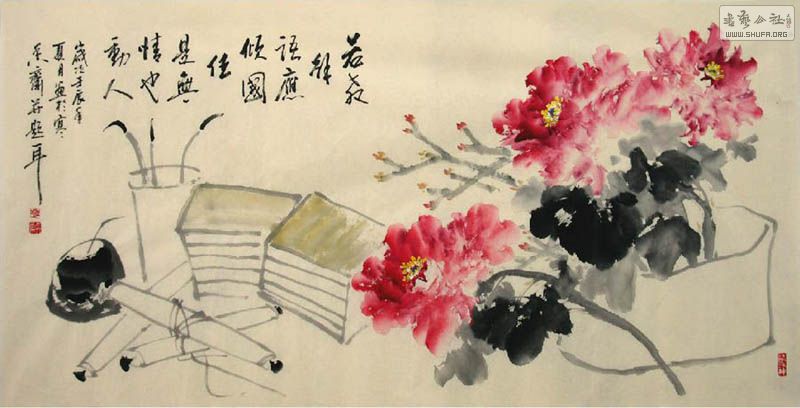 若教
解
語應
傾國
任
是無
情也
動人
歲次壬辰年
夏月畫於寒
香齋并題
書藝公社
WWW.SHUFA.ORG